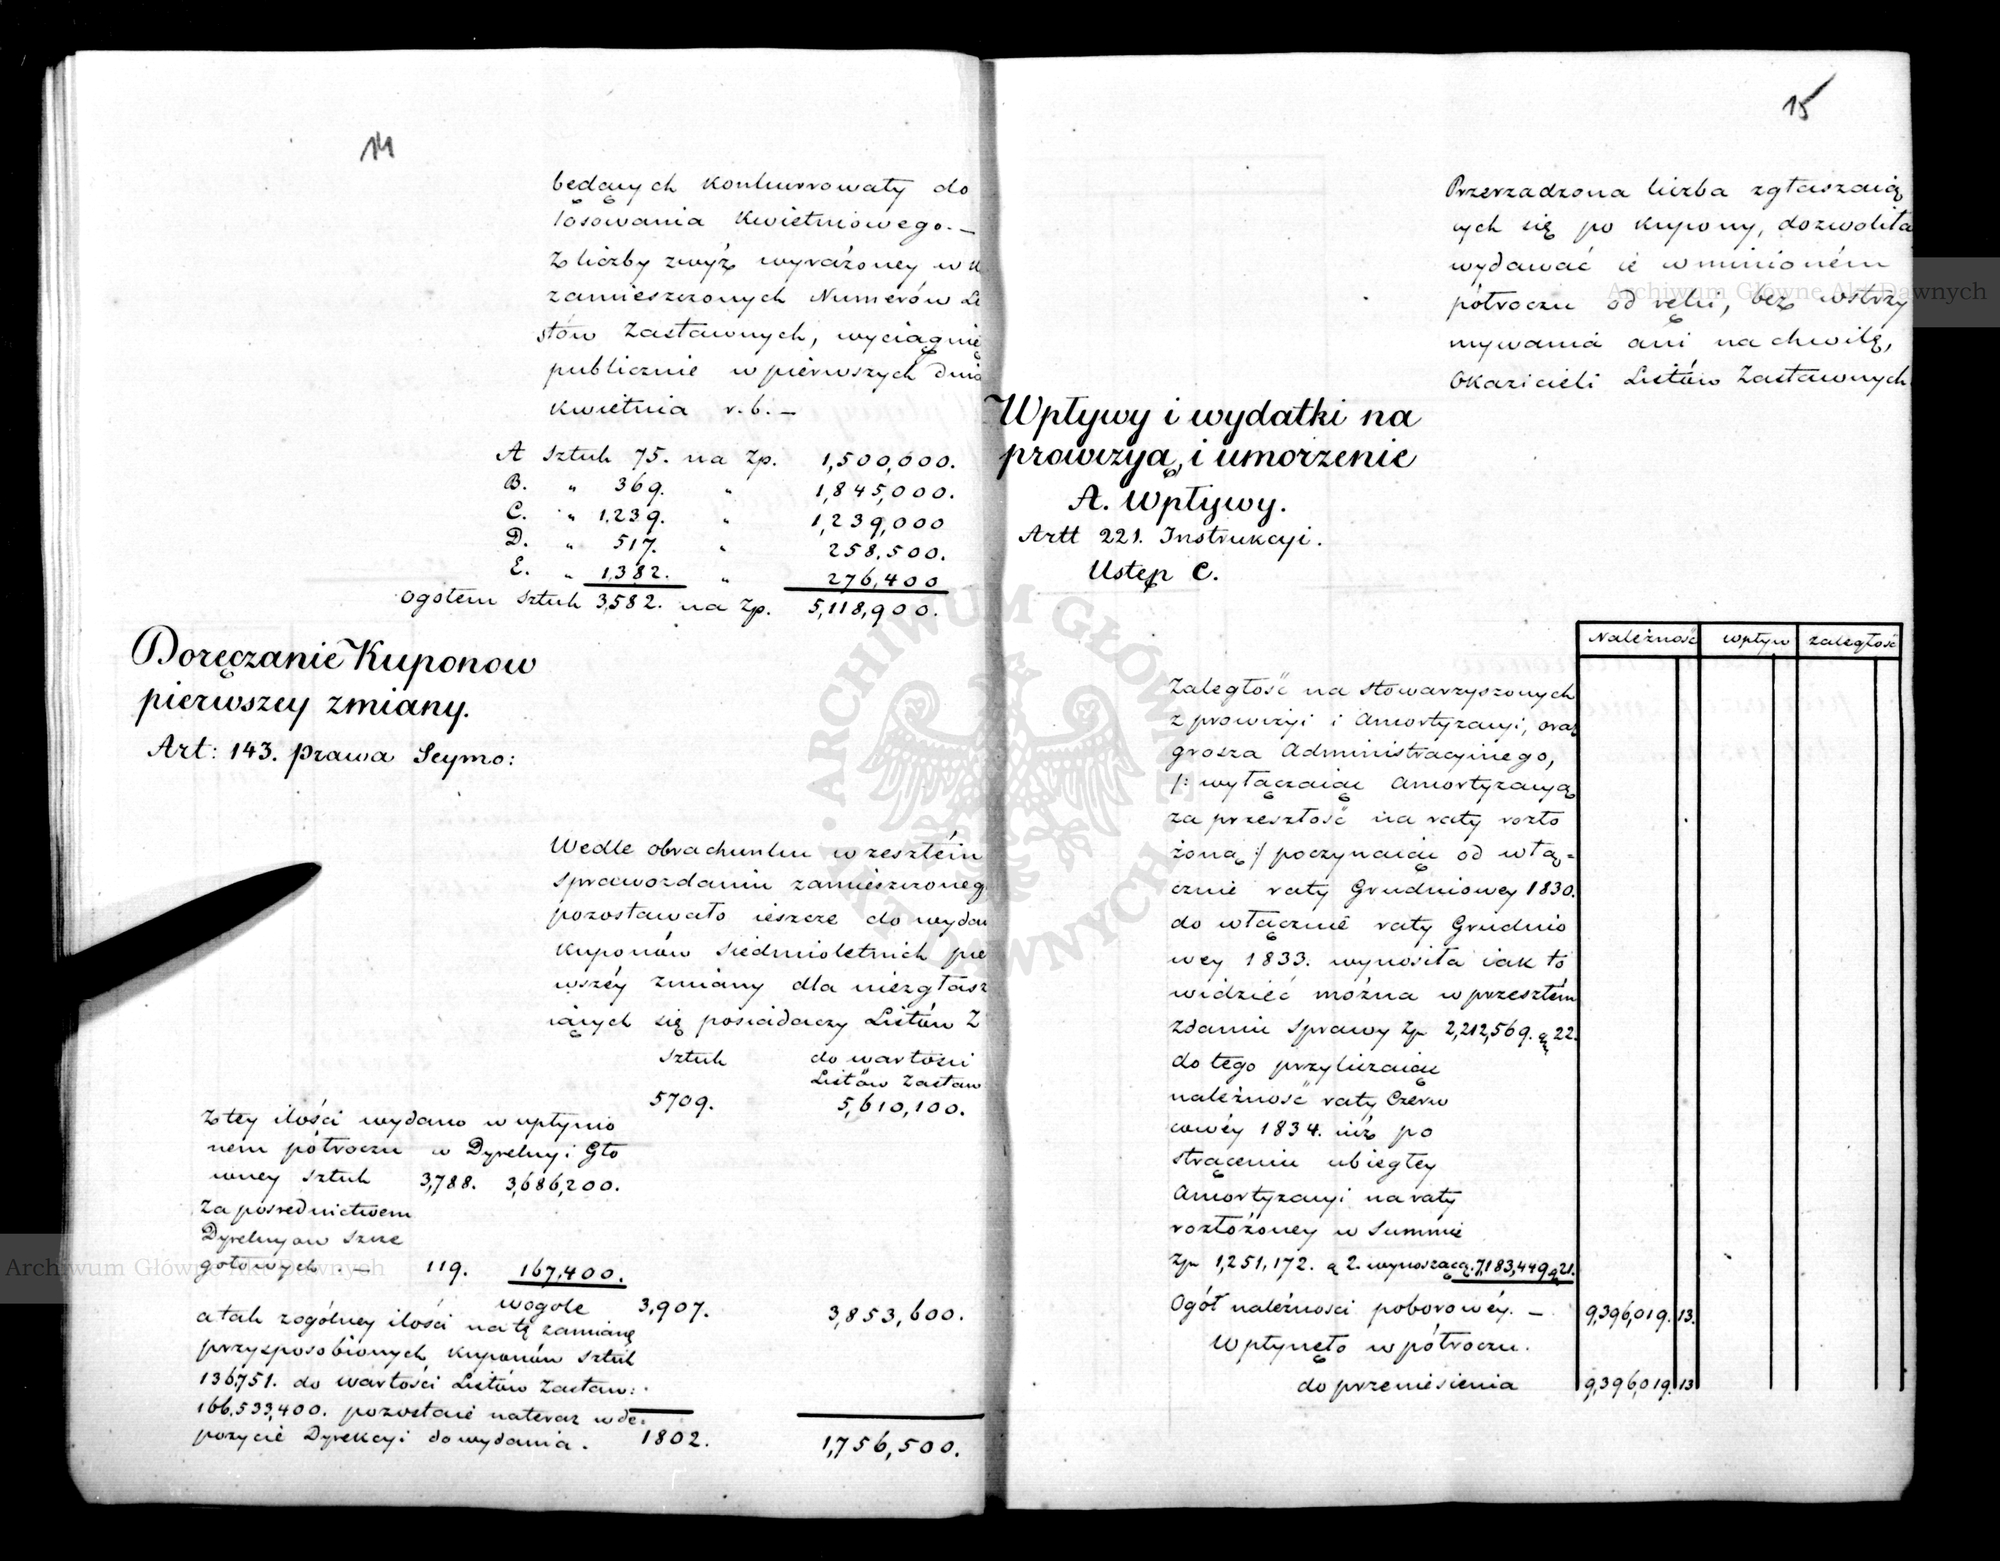 14
będących konkurrowały do
losowania Kwietniowego. —
Z liczby zwyż wyrażoney w
zamieszczonych Numerów Li
stów Zastawnych, wyciągnię
publicznie w pierwszych dnia
Kwietnia r. b. —
A sztuk 75. na Zp. 1,500,000.
B. " 369. " 1,845,000.
C. " 1,239. " 1,239,000
D. " 517. " 258,500.
E. " 1,382. " 276,400
ogółem sztuk 3,582. na Zp. 5,118,900.
Doręczanie Kuponow
pierwszey zmiany.
Art: 143. prawa Seymo:
Wedle obrachunku w zeszłém
sprawozdaniu zamieszczoneg
pozostawało ieszcze do wyda
Kuponów siedmioletnich pie
wszéy zmiany dla niezgłasz
iących się posiadaczy Listów Z
sztuk do wartości
Listów Zastaw
5709. 5,610,100.
Z tey ilości wydano w upłynio
nem półroczu w Dyrekcyi Głó
wney sztuk 3,788. 3,686,200.
Za pośrednictwem
Dyrekcyow szcze
gółowych — 119. 167,400.
wogole 3,907. 3,853,600.
a tak zogólney ilości na tę zamianę
przysposobionych kuponów sztuk
136,751. do wartości Listów Zastaw:
166,533,400. pozostaie nateraz w de
pozycie Dyrekcyi do wydania. 1802. 1,756,500.
15
Przerzadzona liczba zgłaszaią
cych się po Kupony, dozwoliła
wydawać ie w minioném
półroczu od ręki, bez wstrzy
mywania ani na chwilę,
Okazicieli Listów Zastawnych
Wpływy i wydatki na
prowizyą i umorzenie
A. Wpływy.
Artt 221. Instrukcyi.
Ustęp C.
Należność wpływ zaległość
Zaległość na stowarzyszonych
z prowizyi i Amortyzacyi, oraz
grosza Administracyinego,
/: wyłączaiąc Amortyzacyą
za przeszłość na raty rozło
żoną :/ poczynaiąc od włą-
cznie raty Grudniowey 1830.
do włącznie raty Grudnio
wey 1833. wynosiła iak to
widzieć można w przeszłém
Zdaniu sprawy Zp 2,212,569. g 22.
do tego przyliczaiąc
należność raty Czerw
cowéy 1834. iuż po
strąceniu ubiegłey
Amortyzacyi na raty
rozłożoney w Summie
Zp 1,251,172. g 2. wynoszącą. 7,183,449 g 21.
Ogół należności poborowéy. — 9,396,019. 13.
Wpłynęło w półroczu.
do przeniesienia 9,396,019. 13
Archiwum Główne Akt Dawnych
Archiwum Główne Akt Dawnych
ARCHIWUM GŁÓWNE AKT DAWNYCH